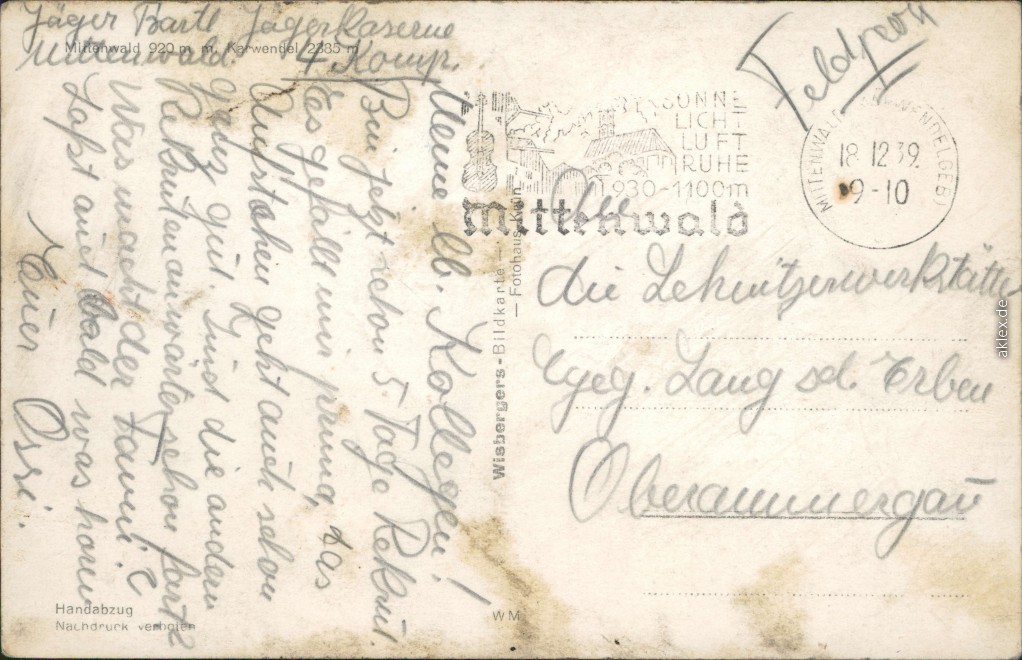 Jäger Bartl Jäger Kaserne
Mittenwald. 4. Komp.
Mittenwald 920 m m. Karwendel 2385 m
Meine lb. Kollegen!
Bin jetzt schon 5 Tage Rekrut.
Das gefällt mir prima, das
Aufstehen geht auch schon
ganz gut. Sind die andern
Rekrutenanwärter schon fort?
Was macht der Tauni?
Laßt auch bald was hören
Euer Ossi.
Handabzug
Nachdruck verboten
Wisbergers-Bildkarte – Fotohaus Köln –
WM
Feldpost
SONNE
LICHT
LUFT
RUHE
930-1100m
Mittenwald
MITTENWALD (KARWENDELGEB)
18.12.39.
9-10
An
die Schnitzerwerkstätte
Gg. Lang sel. Erben
Oberammergau
aklex.de